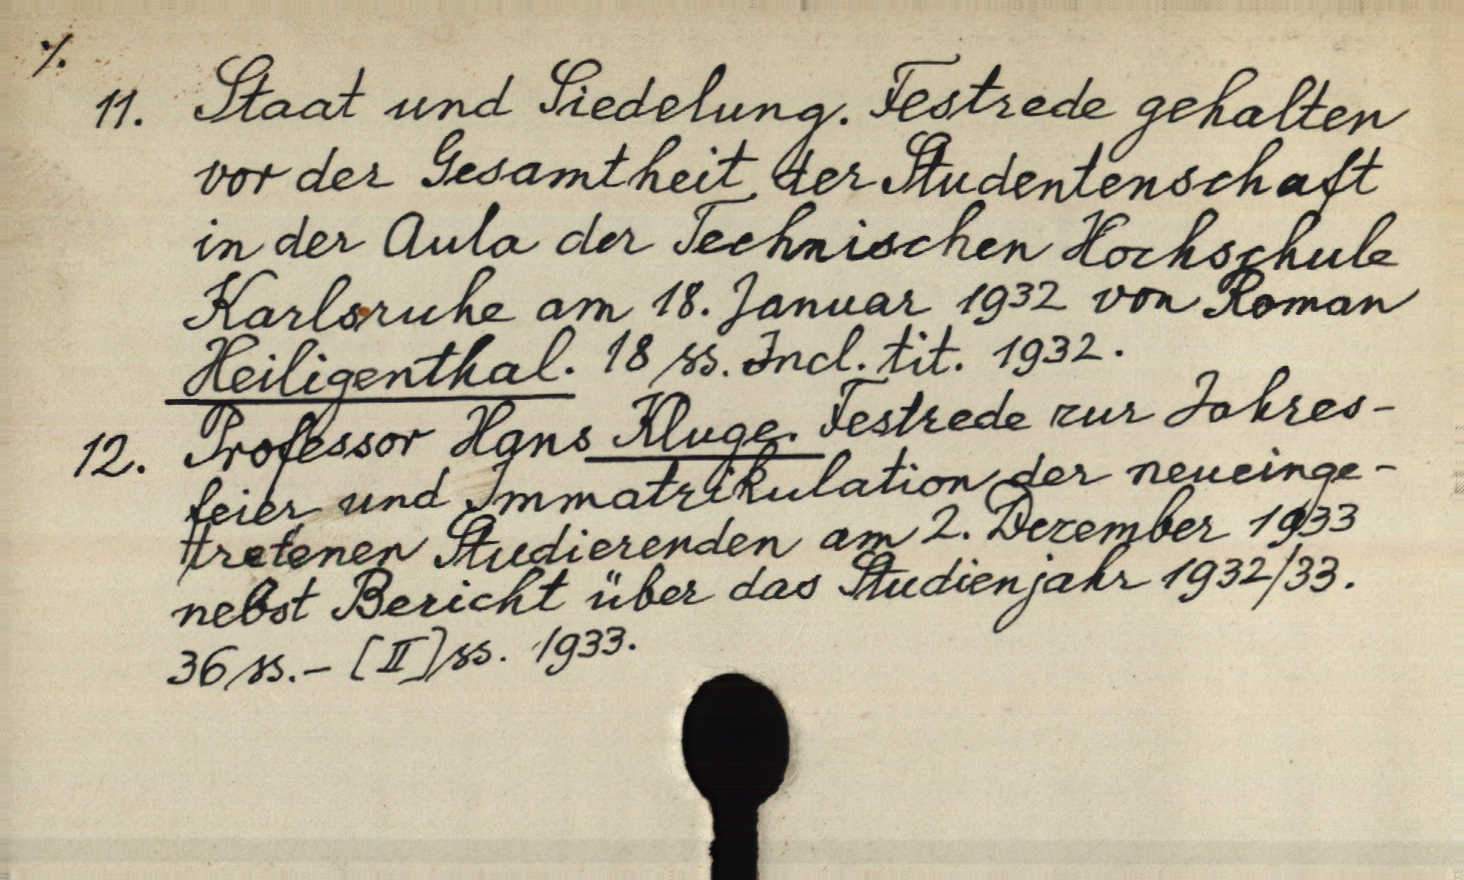 ./.
11. Staat und Siedelung. Festrede gehalten
vor der Gesamtheit der Studentenschaft
in der Aula der Technischen Hochschule
Karlsruhe am 18. Januar 1932 von Roman
Heiligenthal. 18 ss. Incl. tit. 1932.
12. Professor Hans Kluge. Festrede zur Jahres-
feier und Immatrikulation der neueinge-
tretenen Studierenden am 2. Dezember 1933
nebst Bericht über das Studienjahr 1932/33.
36 ss. - [II] ss. 1933.